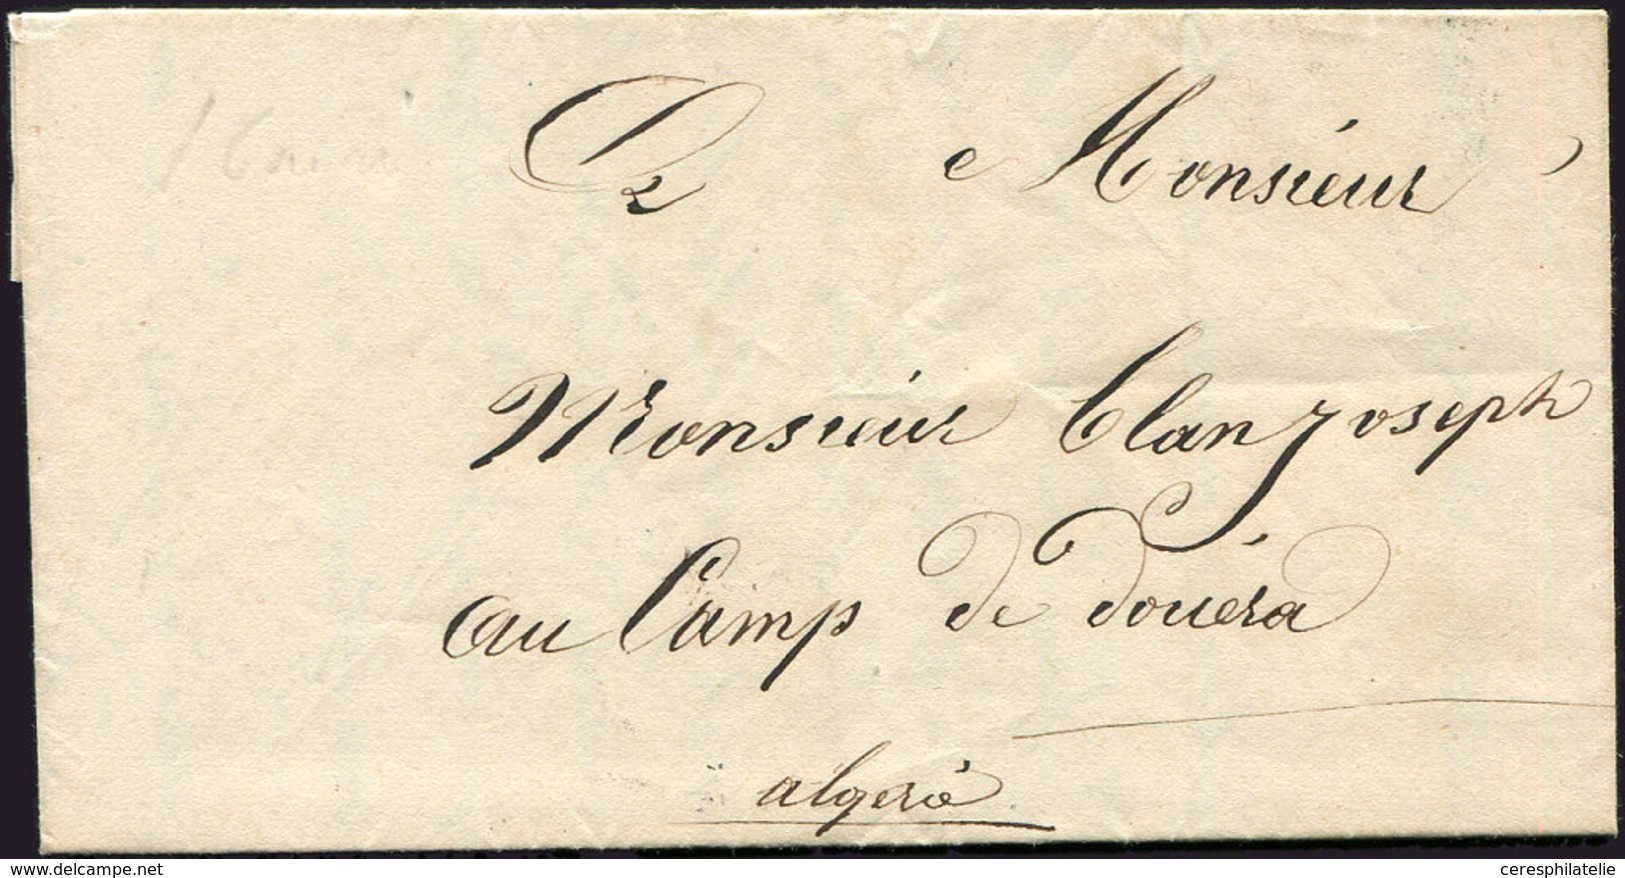 Monsieur
Monsieur Clan Joseph
au Camp de douéra
algerie
delcampe.net
ceresphilatelie